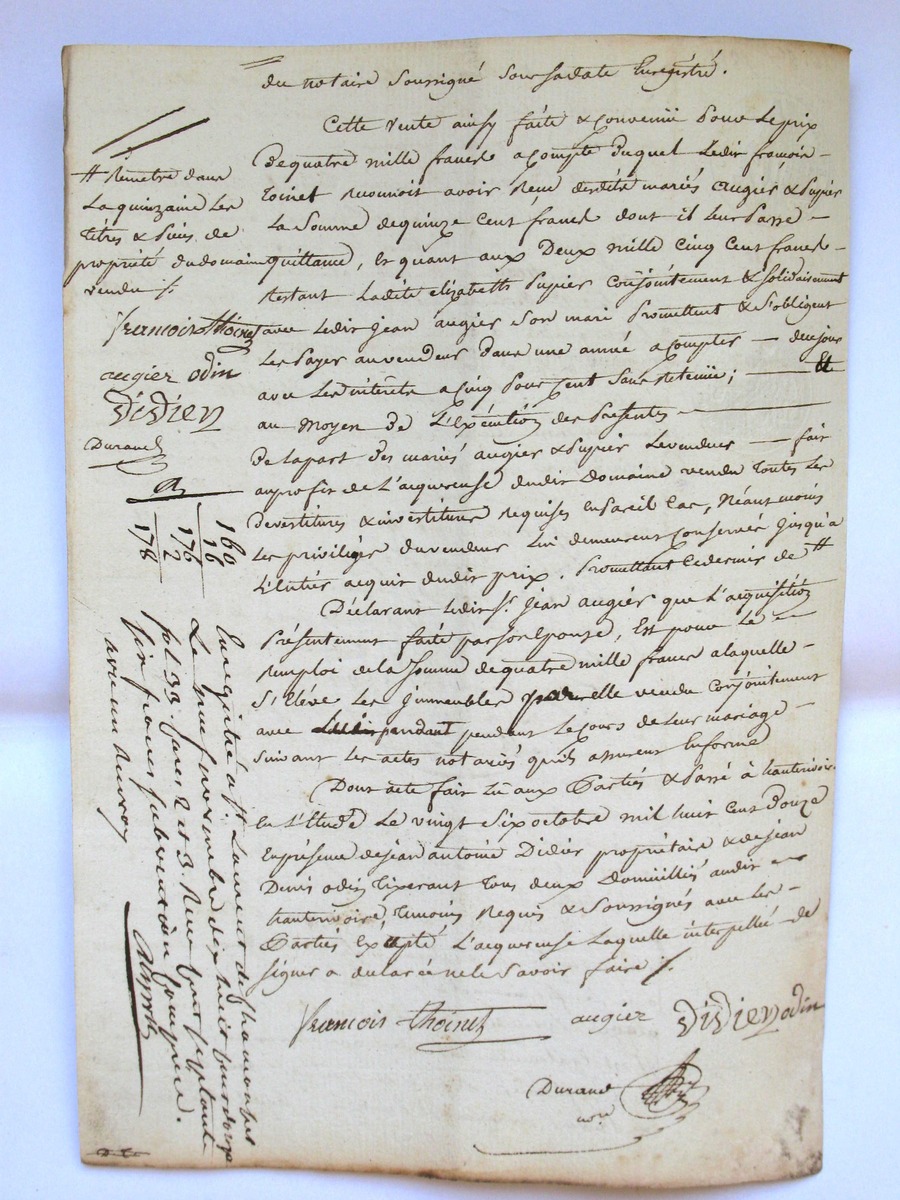 du notaire soussigné sous sa date Enregistré.
Cette vente ainsy faite & Convenüe pour Le prix
De quatre mille francs a compte Duquel Ledit françois -
Toinet reconnoit avoir Reçu desdits mariés augier & Pupier
La Somme de quinze Cent francs dont il leur Passe -
quittance, Et quant aux Deux mille Cinq Cent francs -
Restant Ladite elizabeth Pupier Conjointement & Solidairement
avec Ledit jean augier son mari Promettent & S'obligent
Les Payer au vendeur Dans une année a Compter - de ce jour
avec Les intérêts a cinq Pour Cent Sans retenüe; - Et
au moyen de L'Exécution des Présentes -
De la part des mariés augier & Pupier Le vendeur - fait
au profit de L'acquereuse dudit Domaine vendu Toutes Les
Devestitures & investitures Requises En pareil Cas, Néant moins
Les privilèges du vendeur Lui demeurent Conservés jusqu'a
L'Entier acquit dudit prix. Promettant Ce dernier de #
Déclarant Ledit S.r jean augier que L'acquisition
Présentement faite par son Epouse, Est pour Le -
Remploi de la Somme de quatre mille francs a laquelle -
S'Elève Les Immeubles par elle vendu Conjointement
avec pendant Le Cours de Leur mariage -
Suivant Les actes notariés qu'ils assurent En forme
Dont acte fait Lu aux Parties & Passé à hauterivoir.
En L'Etude Le vingt Six octobre mil huit Cent Douze
En présence de jean antoine Didier propriétaire & de jean
Denis odin Tixerant Tous deux Domiciliés audit
hauterivoire, Temoins Requis & Soussignés avec Les -
Parties Excepté L'acquereuse Laquelle interpellée de
signer a déclaré ne le Savoir faire ./.
francois thoinet augier Didier odin
Durand
no.re
# Remetre dans
La quinzaine Les
Titres & Pièces de
propriété du domaine
vendu ./.
francois thoinet
augier odin
Didier
Durand
160
16
176
2
178
Enregistré à S.t Laurent de Chamousset
Le neuf novembre dix huit cent douze
fol. 33. Cases 2 et 3. Reçu Cent septante
six francs subvention Comprise.